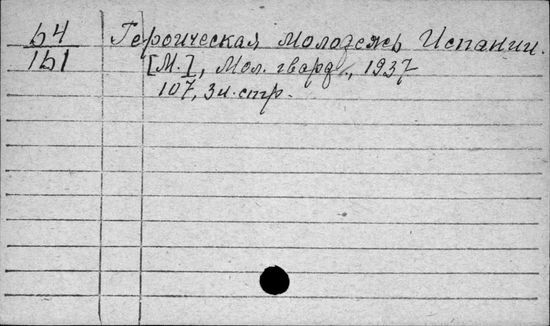 Б4 Героическая молодежь Испании.
1Б1 [М.], Мол. гвард., 1937
107, 3 н. стр.